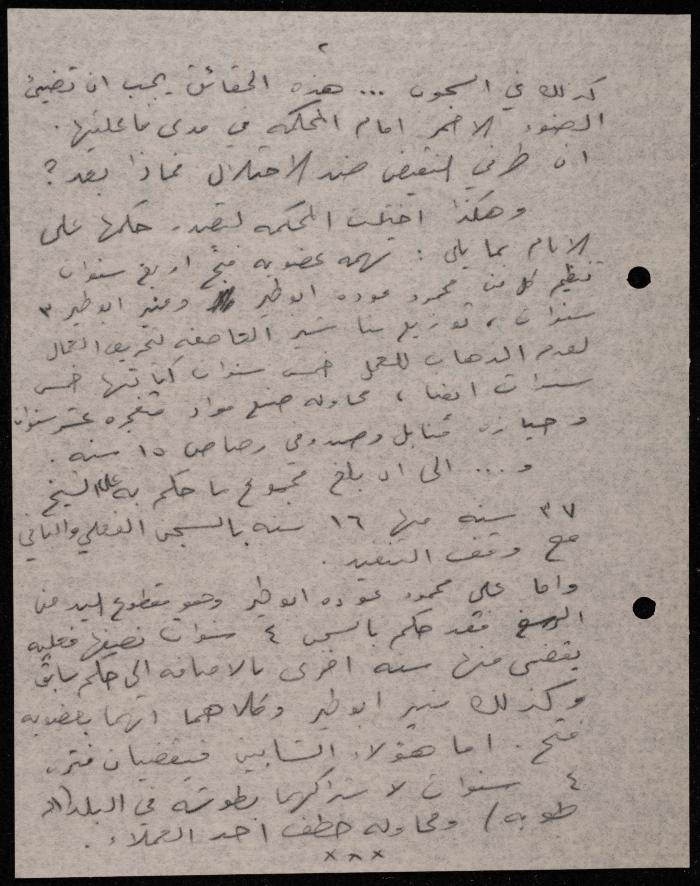 ٢
كذلك في السجون ... هذه الحقائق يجب ان تضيئ
الضوء الاحمر امام المحكمه في مدى فاعليتها.
ان طرفي النقيض ضد الاحتلال فماذا بعد؟
وهكذا اختلت المحكمه لتصدر حكمها على
الامام بما يلي: تهمه عضويه فتح اربع سنوات
تنظيم كل من محمود عوده ابو طير ومنير ابو طير ٣
سنوات، توزيع مناشير العاصفه لتحريض العمال
لعدم الذهاب للعمل خمس سنوات كتابتها خمس
سنوات ايضا، محاوله صنع مواد متفجره عشر سنوات
وحيازه قنابل وصندوق رصاص ١٥ سنه.
و... الى ان بلغ مجموع ما حكم به على الشيخ
٣٧ سنه منها ١٦ سنه بالسجن الفعلي والباقي
مع وقف التنفيذ.
واما على محمود عوده ابو طير وهو مقطوع اليد من
الرسغ فقد حكم بالسجن ٤ سنوات نصفها فعليه
يقضي منها سنه اخرى بالاضافه الى حكم سابق
وكذلك منير ابو طير وكلاهما اتهما بعضويه
فتح. اما هؤلاء الشابين فيقضيان فتره
٤ سنوات لاشتراكهما بطوشه في البلد (
طوبه) ومحاوله خطف احد العملاء.
×××